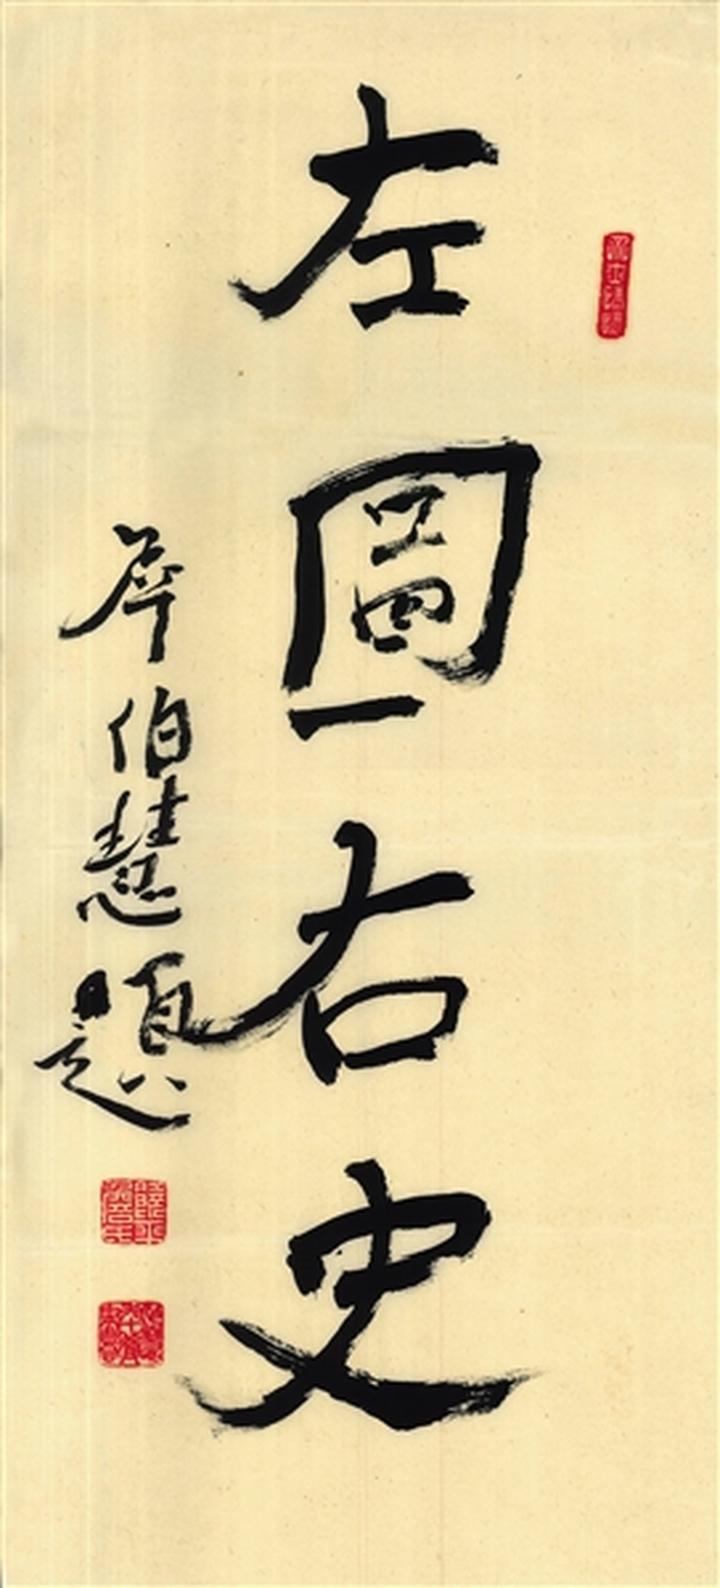 左圖右史
岑伯慧題